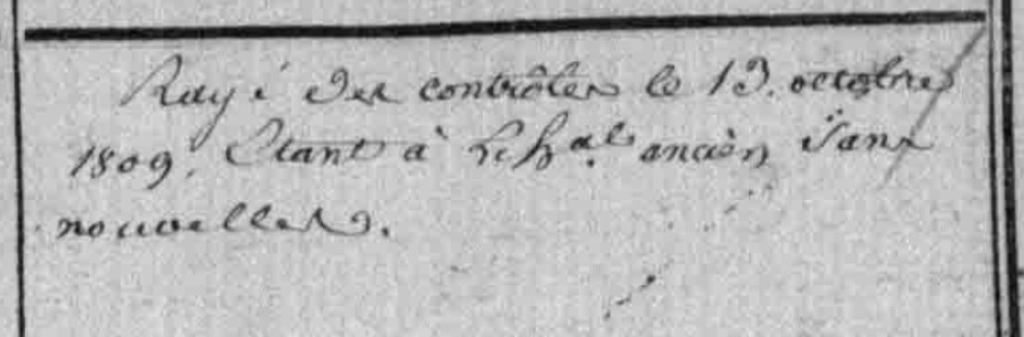 Rayé des contrôles le 13. octobre
1809. Etant à L'h.al ancien sans
nouvelles.